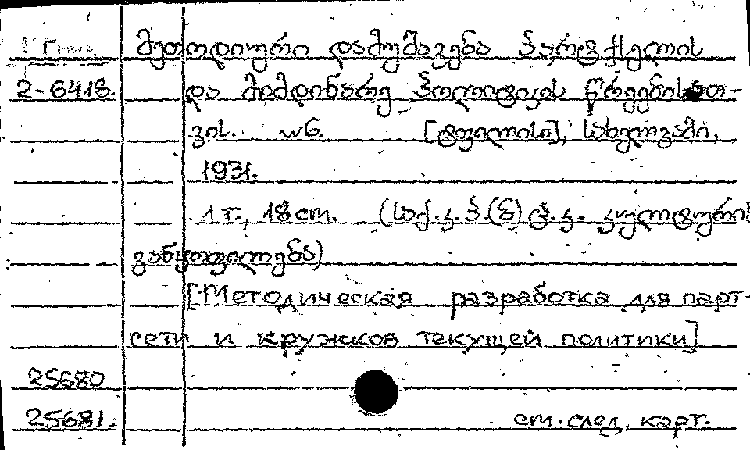 მეთოდიური დამუშავება პარტქსელის
2-6418. და მიმდინარე პოლიტიკის წრეებისათ-
ვის. wб. [ტფილისი], სახელგამი,
1931.
1 т., 18 cm. (საქ. კ. პ. (ბ) ც. კ. კულტურის
განყოფილება)
[Методическая разработка для парт-
сети и кружков текущей политики]
25680
25681. см. след. карт.